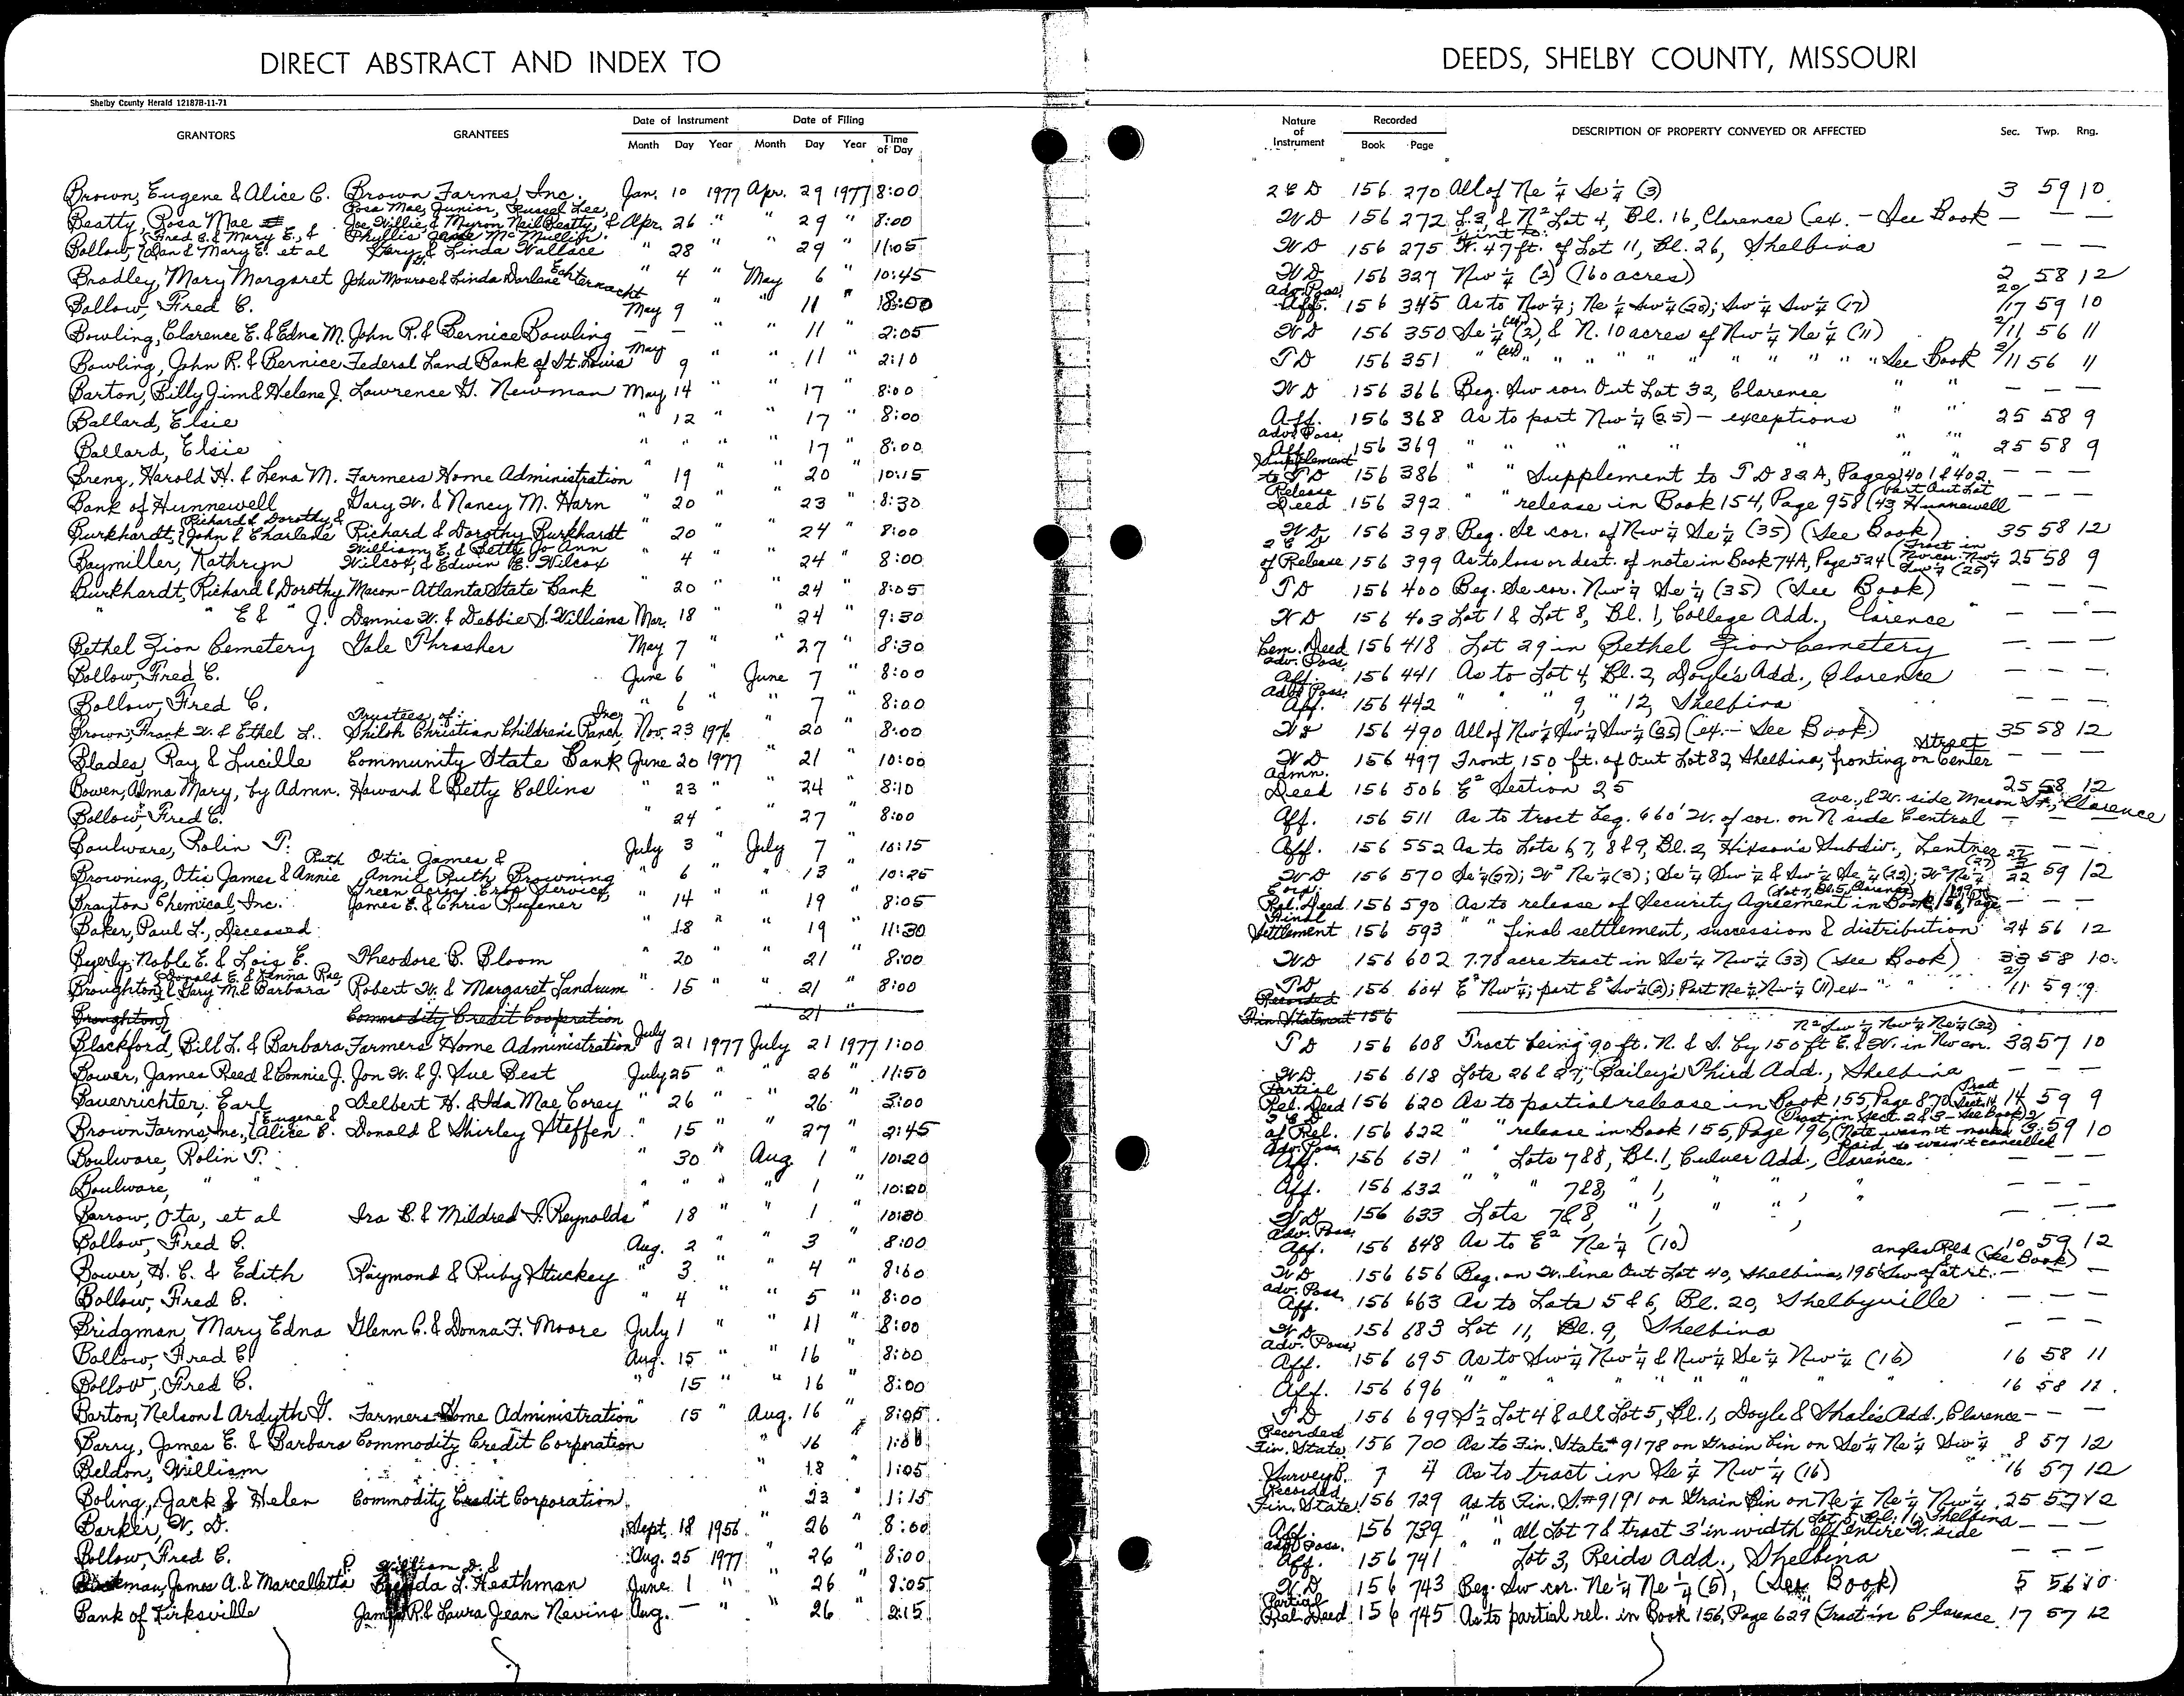 DIRECT ABSTRACT AND INDEX TO
DEEDS, SHELBY COUNTY, MISSOURI
Shelby County Herald 12187B-11-71
GRANTORS GRANTEES Date of Instrument Month Day Year Date of Filing Month Day Year Time of Day Nature of Instrument Recorded Book Page DESCRIPTION OF PROPERTY CONVEYED OR AFFECTED Sec. Twp. Rng.
Brown, Eugene & Alice C. Brown Farms, Inc. Jan. 10 1977 Apr. 29 1977 8:00 2 E D 156 270 All of Ne ¼ Se ¼ (3) 3 59 10
Beatty, Rosa Mae Rosa Mae, Junior, Russel Lee, Joe Willie, & Myron Neil Beatty, & Phyllis McMullin Apr. 26 " " 29 " 8:00 WD 156 272 L.3, & N² Lot 4, Bl. 16, Clarence (ex. - See Book — — —
Bollow, {Fred C. & Mary E., & Dan & Mary E. et al Gary & Linda Wallace " 28 " 29 11:05 WD 156 275 W. 47 ft. of Lot 11, Bl. 26, Shelbina — — —
Bradley, Mary Margaret John Monroe & Linda Darlene Echternacht " 4 " May 6 " 10:45 WD 156 327 Nw ¼ (2) (160 acres) 2 58 12
Bollow, Fred C. May 9 " " 11 " 8:00 Adv. Poss. Aff. 156 345 As to Nw ¼; Ne ¼ Sw ¼ (20); Sw ¼ Sw ¼ (17) 20/17 59 10
Bowling, Clarence E. & Edna M. John R. & Bernice Bowling — — " " 11 " 2:05 WD 156 350 Se ¼ (2), & N. 10 acres of Nw ¼ Ne ¼ (11) 2/11 56 11
Bowling, John R. & Bernice Federal Land Bank of St. Louis May 9 " " 11 " 2:10 TD 156 351 " " " " " " " " " " See Book 2/11 56 11
Barton, Billy Jim & Helene J. Lawrence G. Newman May 14 " " 17 " 8:00 WD 156 366 Beg. Sw cor. Out Lot 32, Clarence " " — — —
Ballard, Elsie " 12 " " 17 " 8:00 Aff. 156 368 As to part Nw ¼ (25) - exceptions " " 25 58 9
Ballard, Elsie " " " " 17 " 8:00 Adv. Poss. Aff. 156 369 " " " " " " " 25 58 9
Breng, Harold H. & Lena M. Farmers Home Administration " 19 " " 20 " 10:15 Supplement to TD 156 386 " " Supplement to TD 82A, Pages 401 & 402 — — —
Bank of Hunnewell Gary W. & Nancy M. Harn " 20 " " 23 " 8:30 Release Deed 156 392 " " release in Book 154, Page 958 (Part Out Lot 43, Hunnewell — — —
Burkhardt, {Richard & Dorothy & John & Charlene Richard & Dorothy Burkhardt " 20 " " 24 " 8:00 WD 156 398 Beg. Se cor. of Nw ¼ Se ¼ (35) (See Book) 35 58 12
Baymiller, Kathryn William E. & Betty Jo Ann Wilcox, & Edwin E. Wilcox " 4 " " 24 " 8:00 2 E D of Release 156 399 As to loss or dest. of note in Book 74A, Page 524 (Tract in Nw cor. Nw ¼ Sw ¼ (25) 25 58 9
Burkhardt, Richard & Dorothy Macon-Atlanta State Bank " 20 " " 24 " 8:05 TD 156 400 Beg. Se cor. Nw ¼ Se ¼ (35) (See Book) — — —
" " E & " J. Dennis W. & Debbie S. Williams Mar. 18 " " 24 " 9:30 WD 156 403 Lot 1 & Lot 8, Bl. 1, College Add., Clarence — — —
Bethel Zion Cemetery Gale Thrasher May 7 " " 27 " 8:30 Cem. Deed 156 418 Lot 29 in Bethel Zion Cemetery — — —
Bollow, Fred C. June 6 " June 7 " 8:00 Adv. Poss. Aff. 156 441 As to Lot 4, Bl. 2, Doyle's Add., Clarence — — —
Bollow, Fred C. " 6 " " 7 " 8:00 Adv. Poss. Aff. 156 442 " " " 9, " 12, Shelbina — — —
Brown, Frank W. & Ethel L. Trustees of: Shiloh Christian Children's Ranch, Inc. Nov. 23 1976 " 20 " 8:00 WD 156 490 All of Nw ¼ Sw ¼ Sw ¼ (35) (ex. - See Book) 35 58 12
Blades, Ray & Lucille Community State Bank June 20 1977 " 21 " 10:00 WD 156 497 Front 150 ft. of Out Lot 82, Shelbina, fronting on Center Street — — —
Bowen, Alma Mary, by Admn. Howard & Betty Collins " 23 " " 24 " 8:10 Admn. Deed 156 506 E² Section 25 25 58 12
Bollow, Fred C. " 24 " " 27 " 8:00 Aff. 156 511 As to tract beg. 660' W. of cor. on N side Central Ave., & W. side Macon St., Clarence
Boulware, Rolin T. July 3 " July 7 " 10:15 Aff. 156 552 As to Lots 6, 7, 8 & 9, Bl. 2, Hixson's Subdiv., Lentner — — —
Browning, Otis James & Annie Ruth Otis James & Annie Ruth Browning " 6 " " 13 " 10:25 WD 156 570 Se ¼ (27); W² Ne ¼ (3); Se ¼ Sw ¼ & Sw ¼ Se ¼ (22); W² Ne ¼ (27) 27/3/22 59 12
Brayton Chemical, Inc. Green Acres Crop Service, James E. & Chris Rufener " 14 " " 19 " 8:05 Rel. Deed 156 590 As to release of Security Agreement in Book 156, Page (Lot 7, Bl. 5, Clarence) — — —
Baker, Paul L., Deceased " 18 " " 19 " 11:30 Final Settlement 156 593 " " final settlement, succession & distribution 24 56 12
Byerly, Noble E. & Lois E. Theodore B. Bloom " 20 " " 21 " 8:00 WD 156 602 7.78 acre tract in Se ¼ Nw ¼ (33) (See Book) 33 58 10
Broughton, {Donald E. & Lenna Rae & Gary M. & Barbara Robert W. & Margaret Landrum " 15 " " 21 " 8:00 TD 156 604 E² Nw ¼; part E² Sw ¼ (2); Part Ne ¼ Nw ¼ (11) ex- " " 2/11 59 9
Broughton Commodity Credit Cooperation " 21 " Recorded Fin. Statement 156
Blackford, Bill L. & Barbara Farmers Home Administration July 21 1977 July 21 1977 1:00 TD 156 608 Tract being 90 ft. N. & S. by 150 ft E. & W. in Nw cor. N² Sw ¼ Nw ¼ Ne ¼ (32) 32 57 10
Bower, James Reed & Connie J. Jon W. & J. Sue Best July 25 " " 26 " 11:50 WD 156 618 Lots 26 & 27, Bailey's Third Add., Shelbina — — —
Bauerrichter, Earl Delbert H. & Ida Mae Corey " 26 " " 26 " 3:00 Partial Rel. Deed 156 620 As to partial release in Book 155, Page 870 (Tract Sect. 14 14 59 9
Brown Farms, Inc., {Eugene & Alice C. Donald & Shirley Steffen " 15 " " 27 " 2:45 2 E D of Rel. 156 622 " " release in Book 155, Page 196 (Tract in Sect. 2 & 3 - See Book) (Note wasn't marked Paid, so wasn't cancelled 2/3 59 10
Boulware, Rolin T. " 30 " Aug. 1 " 10:20 Adv. Poss. Aff. 156 631 " " Lots 7 & 8, Bl. 1, Culver Add., Clarence — — —
Boulware, " " " " " " 1 " 10:20 Aff. 156 632 " " " 7 & 8, " 1, " " " — — —
Barrow, Ota, et al Ira C. & Mildred I. Reynolds " 18 " " 1 " 10:30 WD 156 633 Lots 7 & 8, " 1, " " " — — —
Bollow, Fred C. Aug. 2 " " 3 " 8:00 Adv. Poss. Aff. 156 648 As to E² Ne ¼ (10) 10 59 12
Bower, H. C. & Edith Raymond & Ruby Stuckey " 3 " " 4 " 8:00 WD 156 656 Beg. on W. line Out Lot 40, Shelbina, 195' Sw of at rt. angles Rld (See Book) — —
Bollow, Fred C. " 4 " " 5 " 8:00 Adv. Poss. Aff. 156 663 As to Lots 5 & 6, Bl. 20, Shelbyville — — —
Bridgman, Mary Edna Glenn C. & Donna F. Moore July 1 " " 11 " 8:00 WD 156 683 Lot 11, Bl. 9, Shelbina — — —
Bollow, Fred C. Aug. 15 " " 16 " 8:00 Adv. Poss. Aff. 156 695 As to Sw ¼ Nw ¼ & Nw ¼ Se ¼ Nw ¼ (16) 16 58 11
Bollow, Fred C. " 15 " " 16 " 8:00 Aff. 156 696 " " " " " " " " " 16 58 11
Barton, Nelson & Ardyth G. Farmers Home Administration " 15 " Aug. 16 " 8:05 TD 156 699 S½ Lot 4 & all Lot 5, Bl. 1, Doyle & Shale's Add., Clarence — — —
Barry, James E. & Barbara Commodity Credit Corporation " 16 " 1:00 Recorded Fin. State 156 700 As to Fin. State # 9178 on Grain bin on Se ¼ Ne ¼ Sw ¼ 8 57 12
Beldon, William " 18 " 1:05 Survey B. 7 4 As to tract in Se ¼ Nw ¼ (16) 16 57 12
Boling, Jack & Helen Commodity Credit Corporation " 23 " 1:15 Recorded Fin. State 156 729 As to Fin. S. #9191 on Grain Bin on Ne ¼ Ne ¼ Nw ¼ 25 57 12
Barker, W. D. Sept. 18 1956 " 26 " 8:00 Aff. 156 739 " " all Lot 7 & tract 3' in width off entire W. side Lot 5, Bl. 11, Shelbina — — —
Bollow, Fred C. Aug. 25 1977 " 26 " 8:00 Adv. Poss. Aff. 156 741 " " Lot 3, Reids Add., Shelbina — — —
James A. & Marcelletta P. William D. & Brenda L. Heathman June 1 " " 26 " 8:05 WD 156 743 Beg. Sw cor. Ne ¼ Ne ¼ (5), (See Book) 5 56 10
Bank of Kirksville James R. & Laura Jean Nevins Aug. — " " 26 " 2:15 Partial Rel. Deed 156 745 As to partial rel. in Book 156, Page 629 (Tract in Clarence 17 57 12